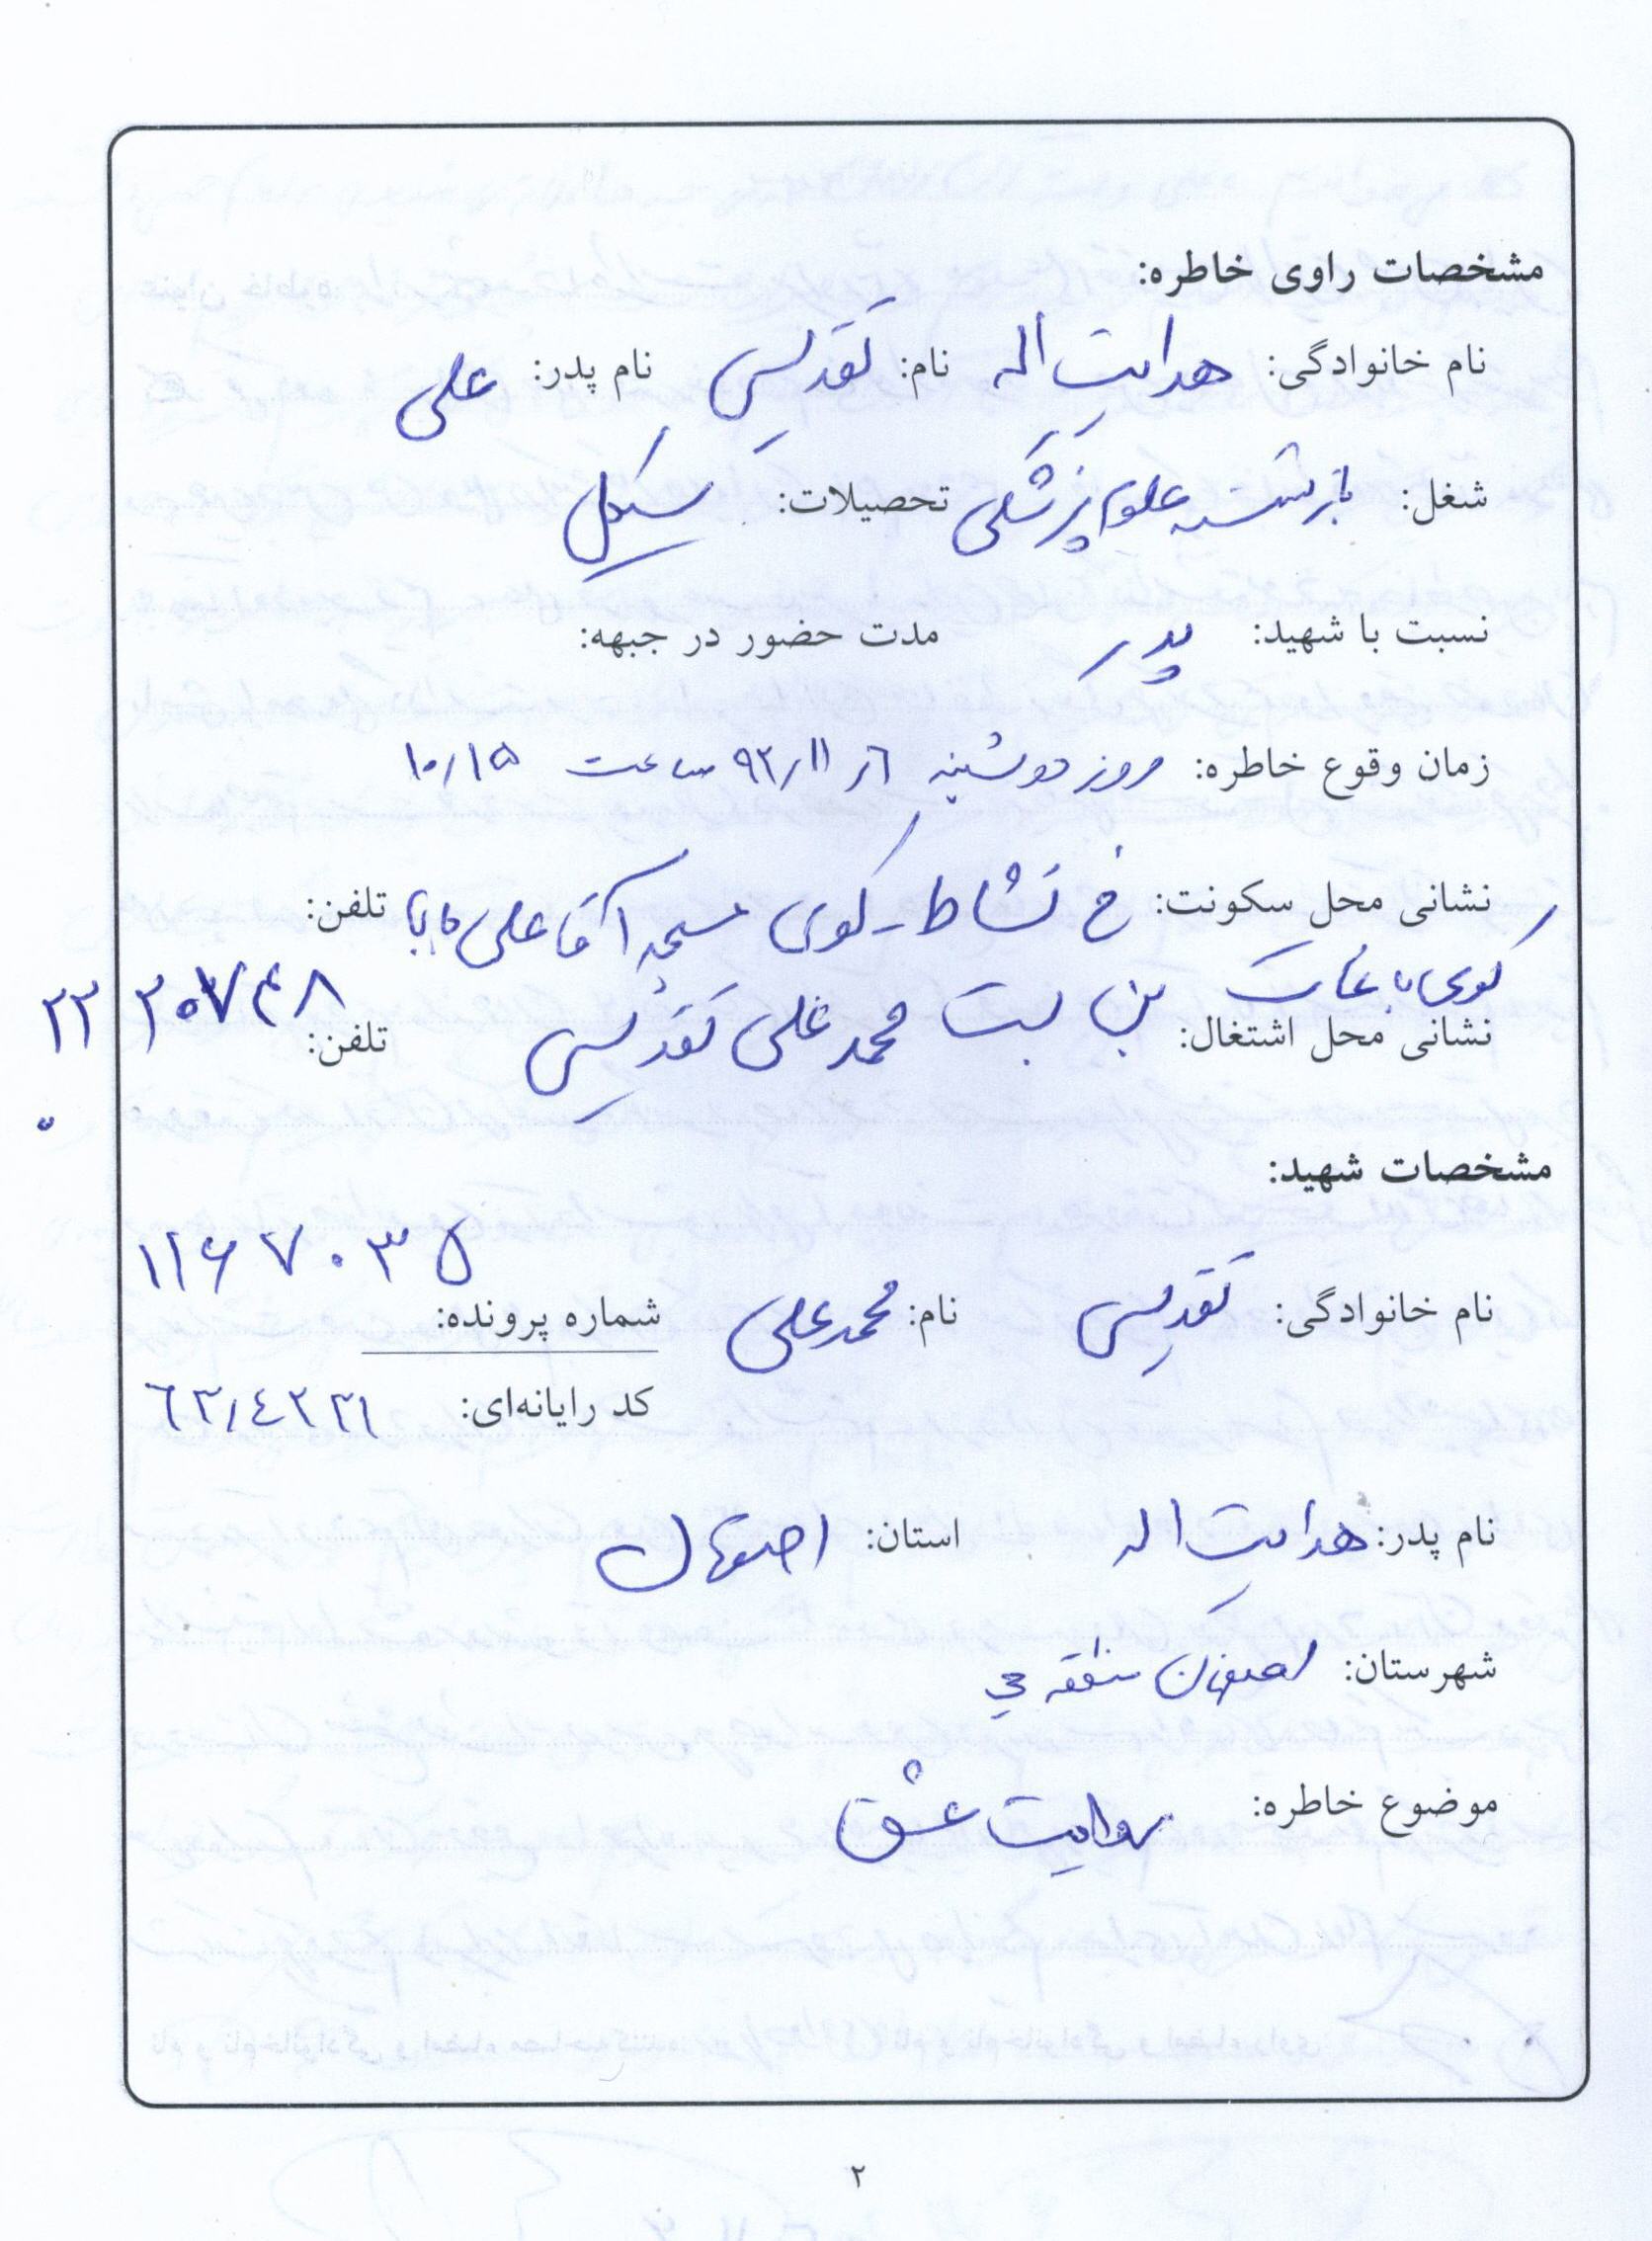 مشخصات راوی خاطره:
نام خانوادگی: هدایت اله نام: تقدیسی نام پدر: علی
شغل: بازنشسته علوم پزشکی تحصیلات: سیکل
نسبت با شهید: پدر مدت حضور در جبهه:
زمان وقوع خاطره: روز دوشنبه ٦ر ۹۲/۱۱ ساعت ۱۰/۱۵
نشانی محل سکونت: خ نشاط - کوی مسجد آقا علی بابا تلفن:
کوی باغات بن بست محمد علی تقدیسی ۳۲۲۰۷۴۸
نشانی محل اشتغال: تلفن:
مشخصات شهید:
۱۱۶۷۰۳۵
نام خانوادگی: تقدیسی نام: محمدعلی شماره پرونده:
کد رایانه‌ای: ٦۲/٤۲۲۱
نام پدر: هدایت اله استان: اصفهان
شهرستان: اصفهان منطقه جی
موضوع خاطره: روایت عشق
۲